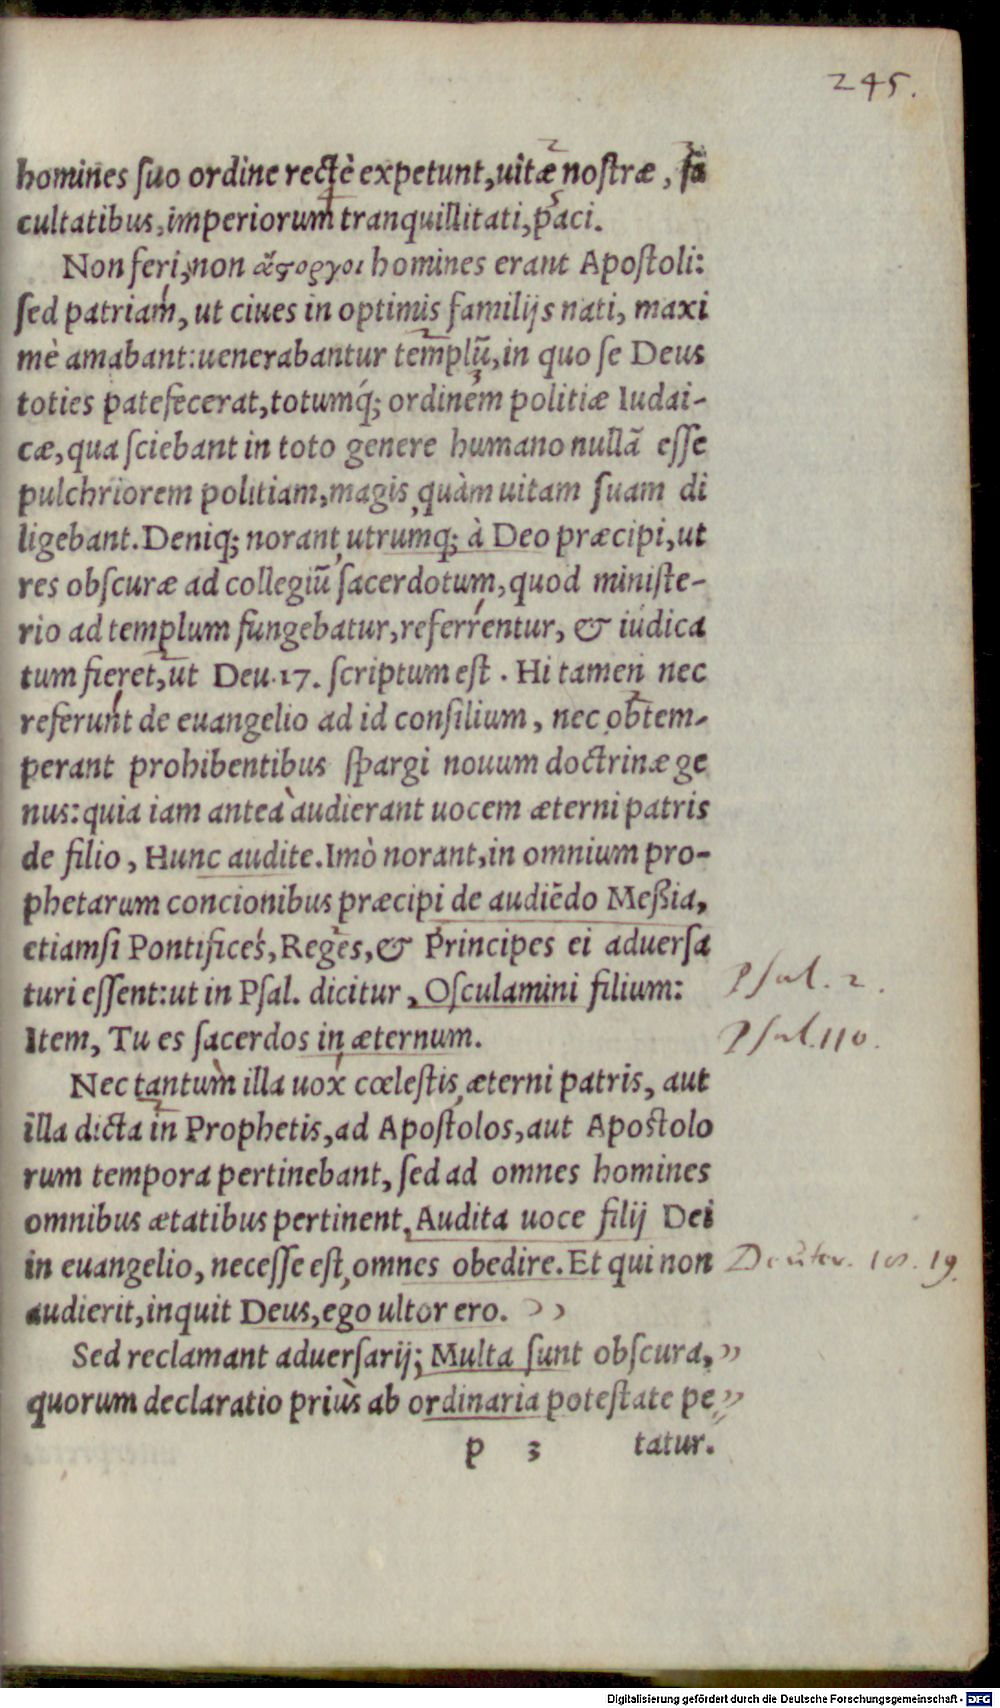 245.
homines suo ordine rectè expetunt, uitæ nostræ, fa
cultatibus, imperiorum tranquillitati, paci.
Non feri, non ἄστοργοι homines erant Apostoli:
sed patriam, ut ciues in optimis familijs nati, maxi
mè amabant: uenerabantur templũ, in quo se Deus
toties patefecerat, totumq́; ordinem politiæ Iudai-
cæ, qua sciebant in toto genere humano nullã esse
pulchriorem politiam, magis quàm uitam suam di
ligebant. Deniq; norant utrumq; à Deo præcipi, ut
res obscuræ ad collegiũ sacerdotum, quod ministe-
rio ad templum fungebatur, referrentur, & iudica
tum fieret, ut Deu. 17. scriptum est. Hi tamen nec
referunt de euangelio ad id consilium, nec obtem-
perant prohibentibus spargi nouum doctrinæ ge
nus: quia iam anteà audierant uocem æterni patris
de filio, Hunc audite. Imò norant, in omnium pro-
phetarum concionibus præcipi de audiẽdo Meßia,
etiamsi Pontifices, Reges, & Principes ei aduersa
turi essent: ut in Psal. dicitur, Osculamini filium:
Psal. 2.
Item, Tu es sacerdos in æternum.
Psal. 110.
Nec tantùm illa uox cœlestis æterni patris, aut
illa dicta in Prophetis, ad Apostolos, aut Apostolo
rum tempora pertinebant, sed ad omnes homines
omnibus ætatibus pertinent. Audita uoce filij Dei
in euangelio, necesse est, omnes obedire. Et qui non
Deuter. 18. 19.
audierit, inquit Deus, ego ultor ero. ››
Sed reclamant aduersarij; Multa sunt obscura, ››
quorum declaratio priùs ab ordinaria potestate pe ››
p 3 tatur.
Digitalisierung gefördert durch die Deutsche Forschungsgemeinschaft - DFG